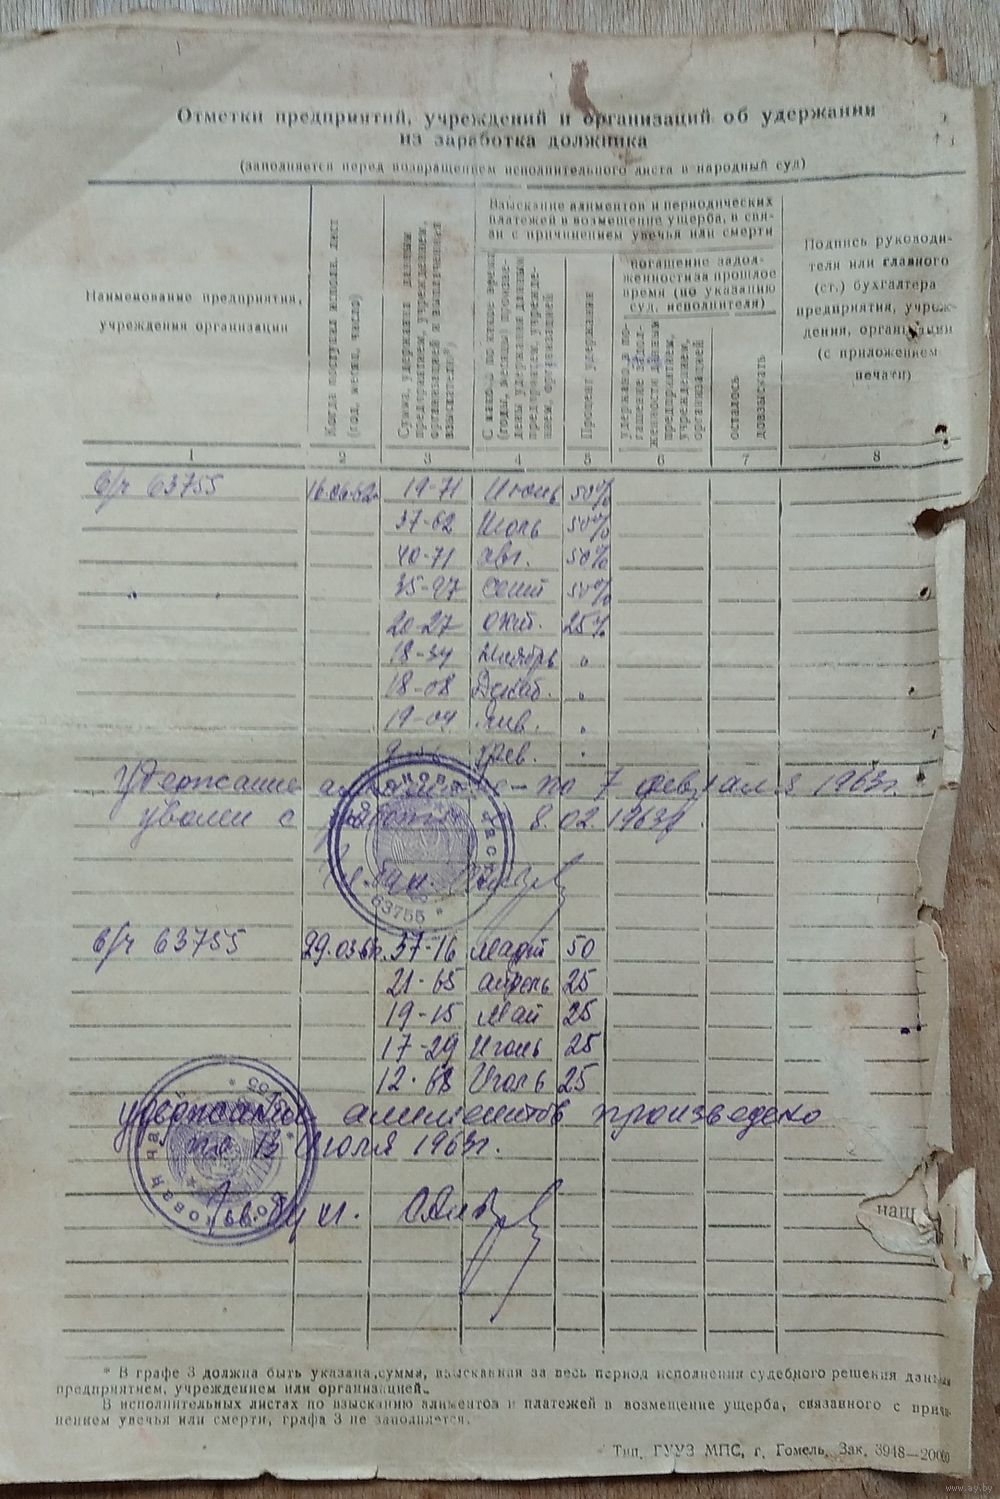 Отметки предприятий, учреждений и организаций об удержании
из заработка должника
(заполняется перед возвращением исполнительного листа в народный суд)
Наименование предприятия,
учреждения организации
Когда поступил исполн. лист
(год, месяц, число)
Сумма, удержанная данным
предприятием, учреждением,
организацией и
взыскателю*)
Взыскание алиментов и периодических
платежей в возмещение ущерба, в свя-
зи с причинением увечья или смерти
С какого по какое время
(годы, месяцы) произве-
дены удержания данным
предприятием, учрежде-
нием, организацией
Процент удержания
погашение задол-
женности за прошлое
время (по указанию
суд. исполнителя)
удержано в по-
гашение задол-
женности данным
предприятием,
учреждением,
организацией
осталось
довзыскать
Подпись руководи-
теля или главного
(ст.) бухгалтера
предприятия, учреж-
дения, организации
(с приложением
печати)
1 2 3 4 5 6 7 8
в/ч 63755 16.06.62г. 19-71 Июнь 50%
37-62 Июль 50%
40-71 авг. 50%
35-97 сент 50%
20-27 окт. 25%
18-34 Ноябрь "
18-08 Декаб. "
19-04 янв. "
фев. "
Удержание по 7 февраля 1963г.
уволен с работы 8.02.1963г.
63755
Гл. бух.
в/ч 63755 29.03.63г. 37-16 Март 50
21-65 апрель 25
19-15 Май 25
17-29 Июнь 25
12-68 Июль 25
удержание алиментов произведено
по 13 июля 1963г.
Гл. бух.
наш
* В графе 3 должна быть указана сумма, взысканная за весь период исполнения судебного решения данным
предприятием, учреждением или организацией.
В исполнительных листах по взысканию алиментов и платежей в возмещение ущерба, связанного с причи-
нением увечья или смерти, графа 3 не заполняется.
Тип. ГУУЗ МПС, г. Гомель. Зак. 3948—20000
www.ay.by